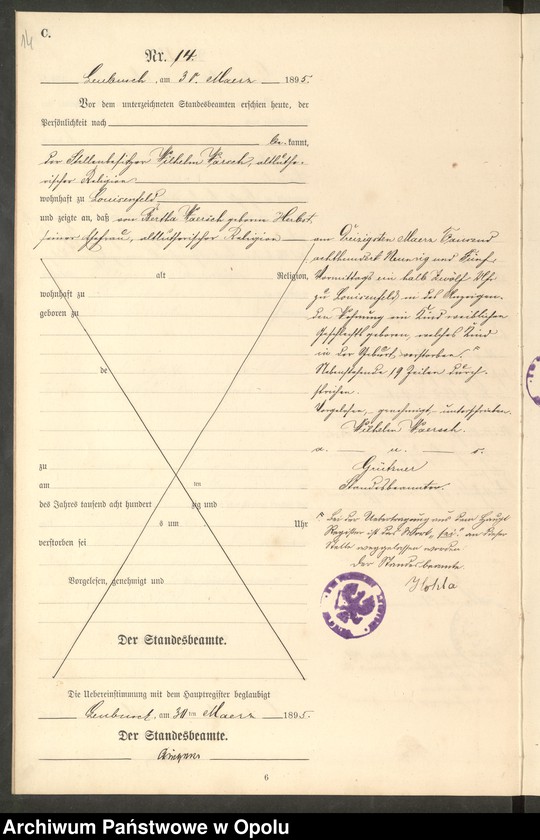 14
C.
Nr. 14.
Leubusch, am 30. Maerz 1895.
Vor dem unterzeichneten Standesbeamten erschien heute, der
Persönlichkeit nach
be kannt,
der Stellenbesitzer Wilhelm Kaersch, altluthe-
rischer Religion
wohnhaft zu Louisenfeld
und zeigte an, daß von Bertha Kaersch geborne Herbst,
seiner Ehefrau, altlutherischer Religion
alt Religion,
wohnhaft zu
geboren zu
de
zu
am ten
des Jahres tausend acht hundert zig und
s um Uhr
verstorben sei
Vorgelesen, genehmigt und
Der Standesbeamte.
am Dreizigsten Maerz Tausend
achthundert Neunzig und Fünf
Vormittags ein halb zwölf Uhr
zu Louisenfeld, in des Anzeigen-
den Wohnung ein Kind weiblichen
Geschlechts geboren, welches Kind
in der Geburt verstorben."
Nebenstehende 19 Zeilen durch-
strichen.
Vorgelesen, genehmigt, unterschrieben.
Wilhelm Kaersch.
a. u. s.
Standesbeamter.
" Bei der Uebertragung aus dem Haupt
Register ist das Wort „sei" an dieser
Stelle weggelassen worden
Der Standesbeamte.
Die Uebereinstimmung mit dem Hauptregister beglaubigt
Leubusch, am 30 ten Maerz 1895.
Der Standesbeamte.
6
Archiwum Państwowe w Opolu